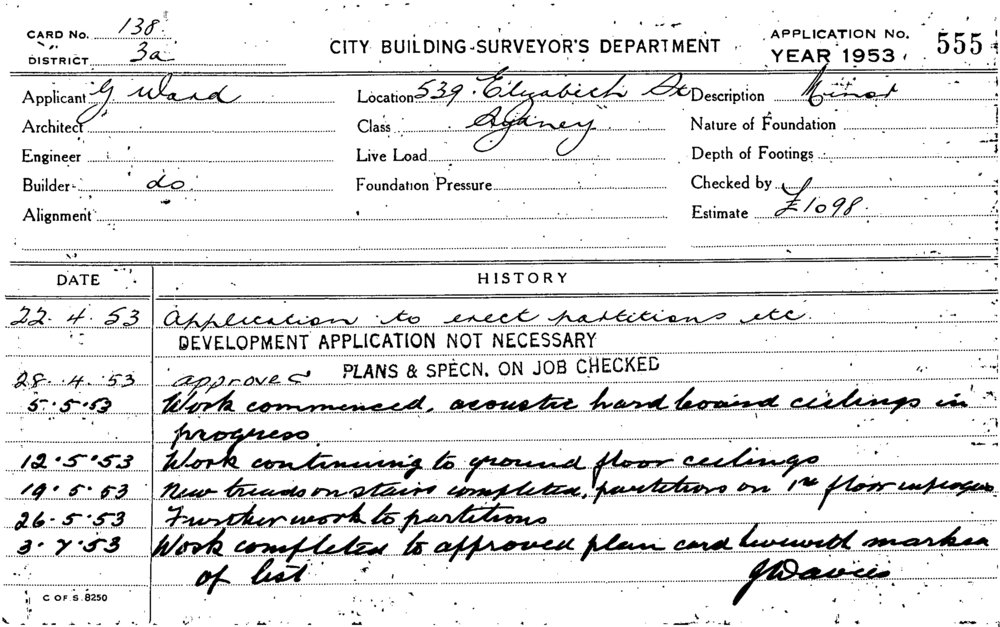 CARD No. 138.
DISTRICT 3a
CITY BUILDING SURVEYOR'S DEPARTMENT
APPLICATION No. 555
YEAR 1953
Applicant G Ward
Location 539 Elizabeth St
Description Minor
Architect
Class Sydney
Nature of Foundation
Engineer
Live Load
Depth of Footings
Builder do
Foundation Pressure
Checked by
Alignment
Estimate £1098.
DATE HISTORY
22.4.53 Application to erect partitions etc.
DEVELOPMENT APPLICATION NOT NECESSARY
28.4.53 approved PLANS & SPECN. ON JOB CHECKED
5.5.53 Work commenced, acoustic hard board ceilings in
progress
12.5.53 Work continuing to ground floor ceilings
19.5.53 New treads on stairs completed, partitions on 1st floor in progress
26.5.53 Further work to partitions
3.7.53 Work completed to approved plan card herewith marked
of list JDavies
C OF S. 8250